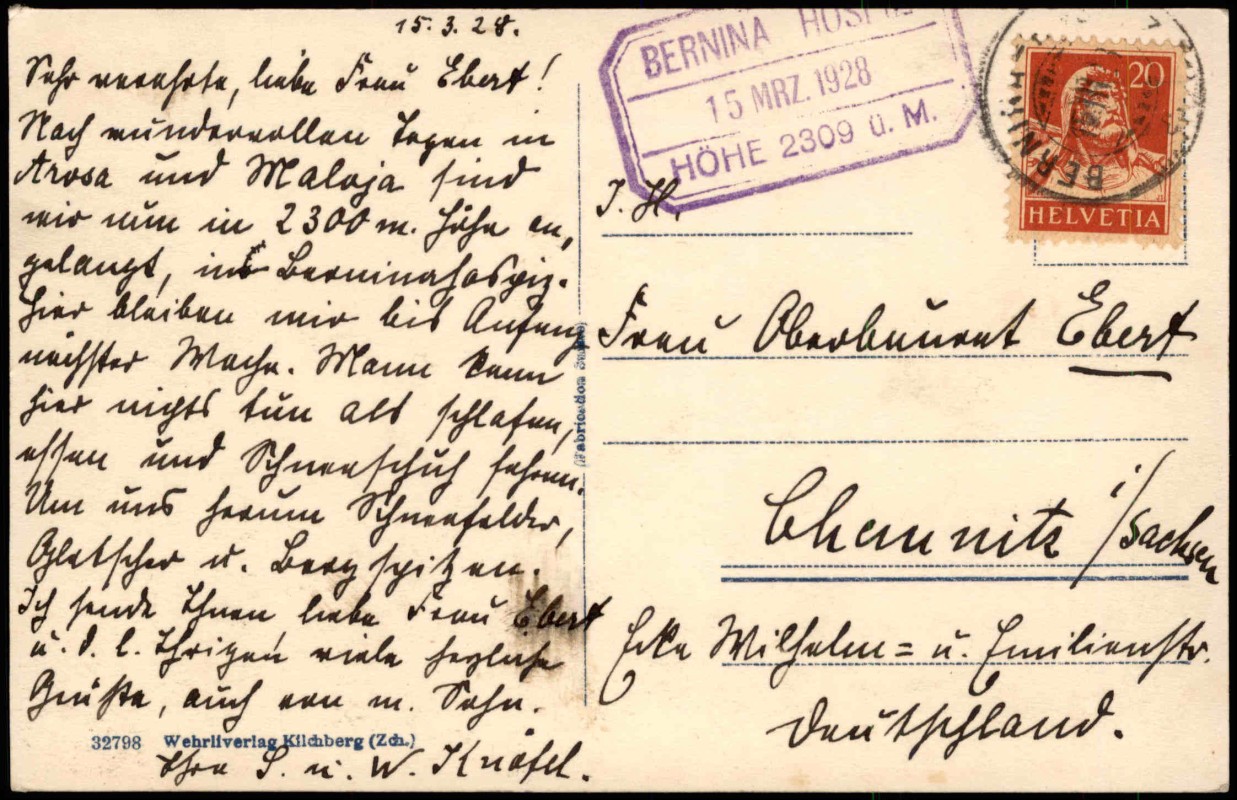 15. 3. 28.
Sehr verehrte, liebe Frau Ebert!
Nach wundervollen Tagen in
Arosa und Maloja sind
wir nun in 2300 m. Höhe an,
gelangt, ins Berninahospiz.
Hier bleiben wir bis Anfang
nächster Woche. Mann kann
hier nichts tun als schlafen,
essen und Schneeschuh fahren.
Um uns herum Schneefelder,
Gletscher u. Bergspitzen.
Ich sende Ihnen liebe Frau Ebert
u. d. l. Ihrigen viele herzliche
Grüße, auch von m. Sohn.
Ihre S. u. W. Knöfel.
32798 Wehrliverlag Kilchberg (Zch.)
(Fabrication Suisse)
BERNINA HOSPIZ
15 MRZ. 1928
HÖHE 2309 ü. M.
BERNINA
20
HELVETIA
I. H.
Frau Oberbaurat Ebert
Chemnitz i/Sachsen
Ecke Wilhelm= u. Emilienstr.
Deutschland.